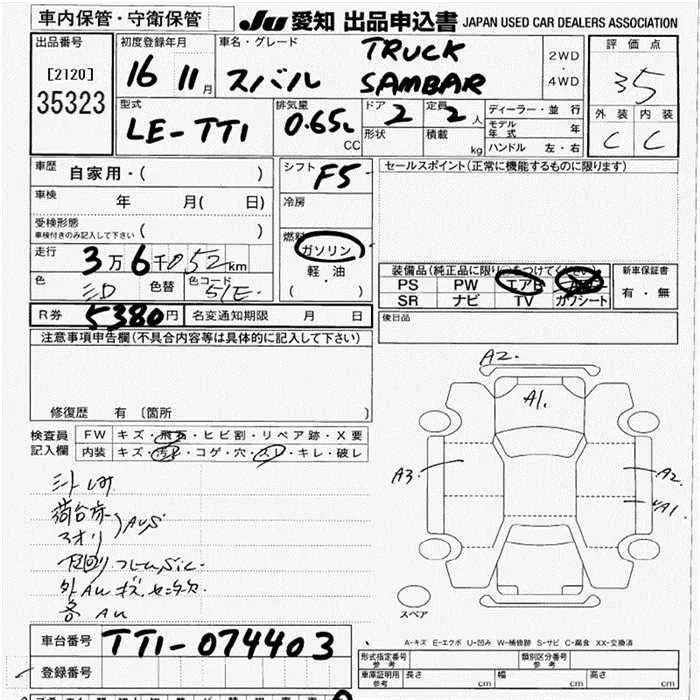 車内保管・守衛保管
JU 愛知 出品申込書 JAPAN USED CAR DEALERS ASSOCIATION
出品番号
[2120]
35323
初度登録年月
16 11月
車名・グレード
スバル
TRUCK
SAMBAR
2WD
・
4WD
評価点
35
外装 内装
C C
型式
LE-TT1
排気量
0.65L
CC
ドア 2
形状
定員 2人
積載 kg
ディーラー・並行
モデル年式 年
ハンドル 左・右
車歴 自家用・( )
車検 年 月( 日)
受検形態
車検付きのみ記入して下さい ( )
走行 3万6千052km
色 色替 色コード 51E
シフト F5
冷房
燃料
ガソリン
軽油
・
( )
セールスポイント(正常に機能するものに限ります)
装備品(純正品に限り○をつけてください)
PS PW エアB
SR ナビ TV ガワシート
新車保証書
有・無
後日品
R券 5380円 名変通知期限 月 日
注意事項申告欄(不具合内容等は具体的に記入して下さい)
修復歴 有 〔箇所 〕
検査員
記入欄
FW キズ・飛石・ヒビ割・リペア跡・X要
内装 キズ・汚れ・コゲ・穴・スレ・キレ・破レ
荷台床
アオリ
A2.
A1.
A3.
A2.
A1.
スペア
A-キズ E-エクボ U-凹み W-補修跡 S-サビ C-腐食 XX-交換済
車台番号 TT1-074403
登録番号
形式指定番号
参考
類別区分番号
参考
車庫証明用
参考
長さ cm 幅 cm 高さ cm